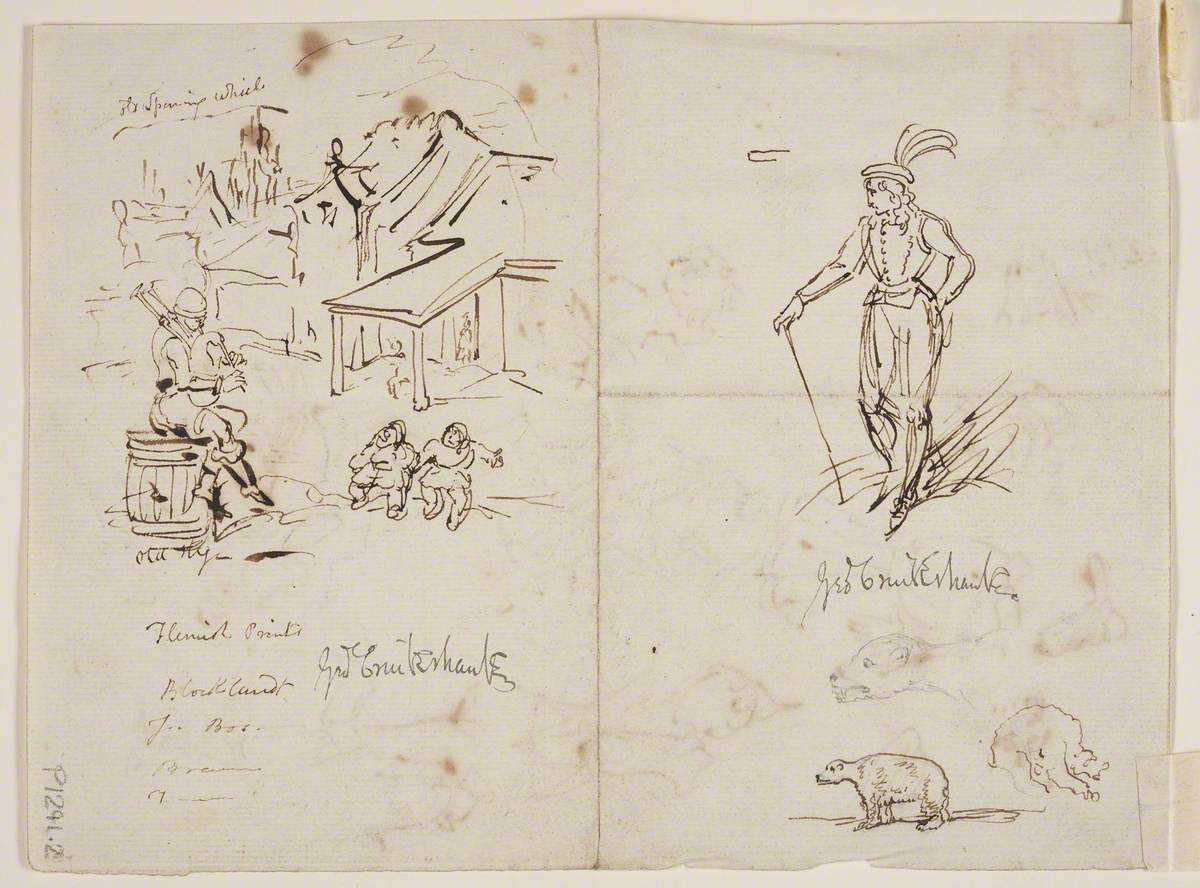 Spinning Wheel
old Rye
Flemish Prints
Blocklandt
J. Bos.
Geo Cruikshank
Geo Cruikshank.
P1291.2